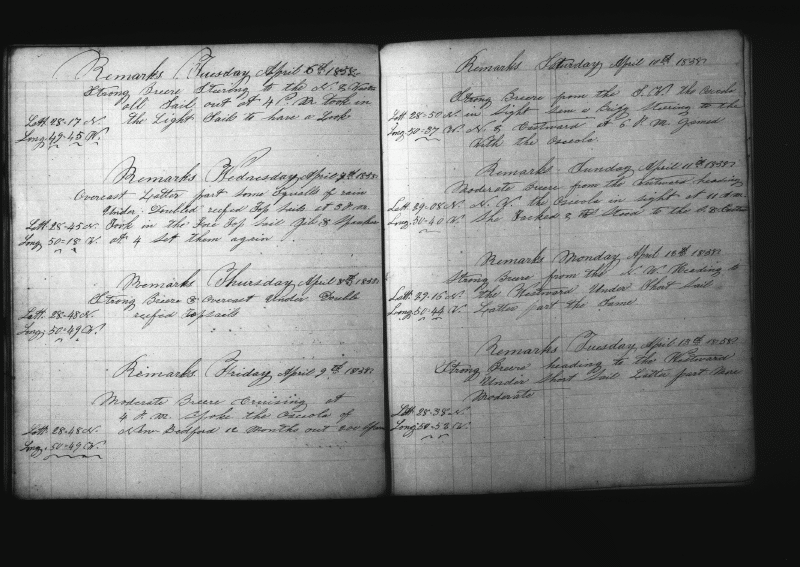 Remarks Tuesday April 6th 1858
Strong Breeze Stering to the N. &
all Sail out at 4 P. M. Took in
Latt. 28-17 N. the Light Sails to have a Look
Long. 49-45 W.
Remarks Wednesday April 7th 1858
Overcast Latter part some Squalls of rain
Under Doubled reefed Top Sails at 3 P. M.
Latt. 28-45 N. Took in the Fore Top Sail Jib & Spanker
Long. 50-18 W. at 4 Set them again
Remarks Thursday April 8th 1858
Strong Breeze & Overcast Under Double
Latt. 28-48 N. reefed Topsails
Long. 50-49 W.
Remarks Friday April 9th 1858
Moderate Breeze Cruising at
4 P. M. Spoke the Osceola of
Latt. 28-48 N. New Bedford 12 Months out 200
Long. 50-49 W.
Remarks Saturday April 10th 1858
Strong Breeze from the S. W. the Osceola
Latt. 28-50 N. in Sight Seen a Brig Stering to the
Long. 50-37 W. N. & Eastward at 6 P. M. Gamed
With the Osceola
Remarks Sunday April 11th 1858
Moderate Breeze from the Eastward heading
Latt. 29-08 N. N. the Osceola in sight at 11
Long. 50-40 W. She Tacked & Stood to the S. &
Remarks Monday April 12th 1858
Strong Breeze from the N. W. Heading to
Latt. 29-16 N. the Westward Under Short Sail
Long. 50-44 W. Latter part the Same
Remarks Tuesday April 13th 1858
Strong Breeze heading to the Westward
Under Short Sail Latter part More
Moderate
Latt. 28-38 N.
Long. 50-53 W.